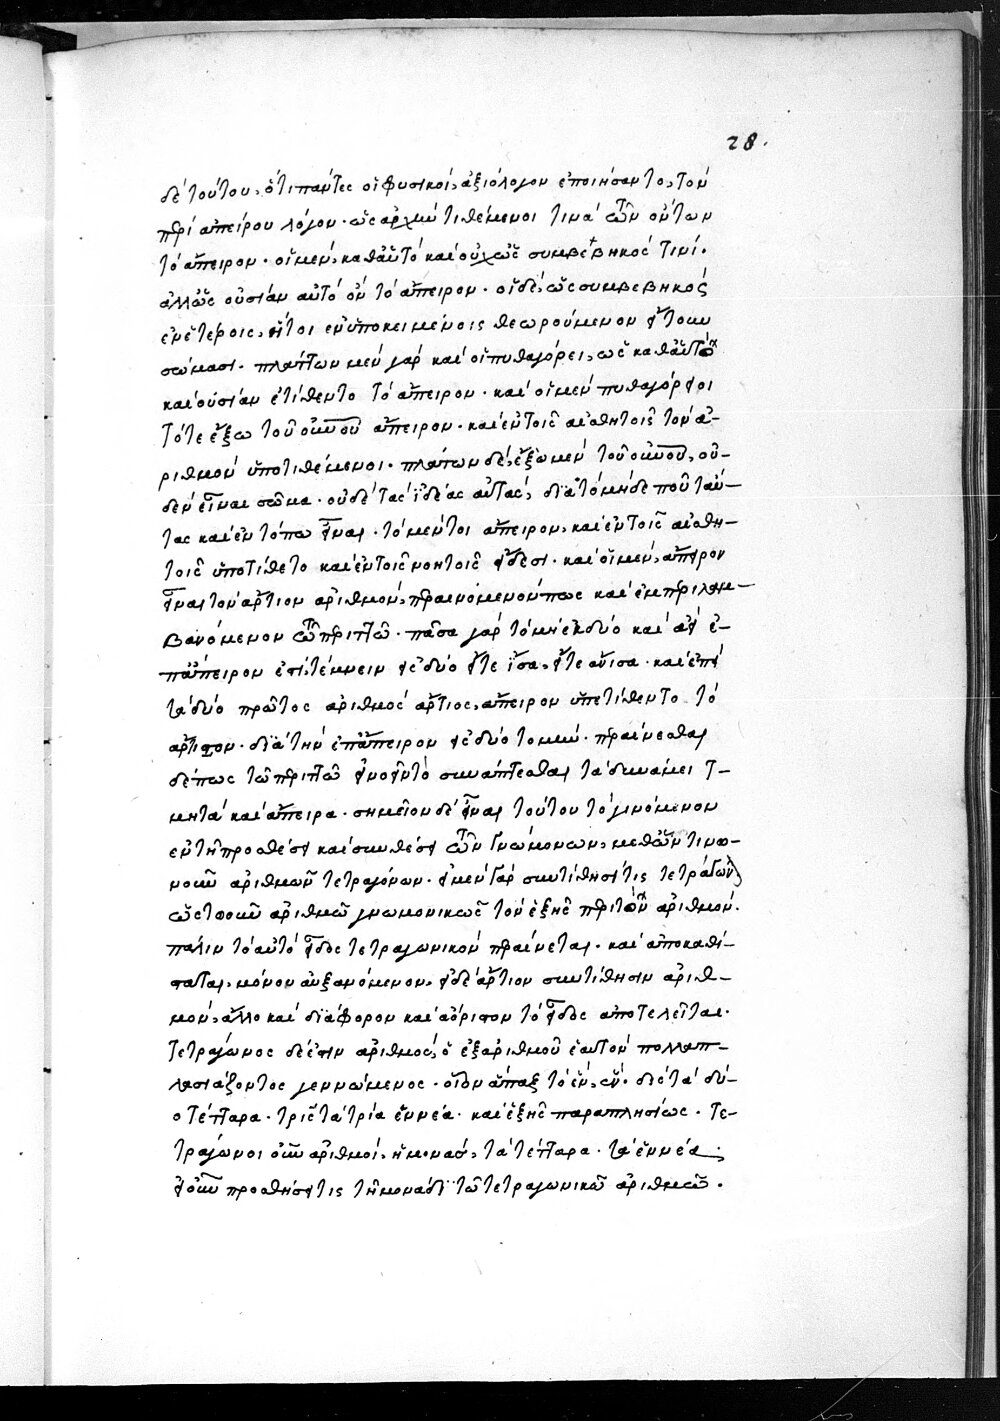 28.
δὲ τούτου, ὅτι πάντες οἱ φυσικοὶ, ἀξιόλογον ἐποιήσαντο, τὸν
περὶ ἀπείρου λόγον· ὡς ἀρχὴν τιθέμενοι τινὰ τῶν ὄντων
τὸ ἄπειρον· οἱ μὲν, καθ' αὑτὸ καὶ οὐχ ὡς συμβεβηκός τινί·
ἀλλ' ὡς οὐσίαν αὐτὸ ὂν τὸ ἄπειρον· οἱ δὲ, ὡς συμβεβηκὸς
ἐν ἑτέροις, ἤτοι ἐν ὑποκειμένοις θεωρούμενον ἤτοι
σώμασι· πλάτων μὲν γὰρ καὶ οἱ πυθαγόρει, ὡς καθ' αὑτὸ
καὶ οὐσίαν ἐτίθεντο τὸ ἄπειρον· καὶ οἱ μὲν πυθαγόρειοι
τότε ἔξω τοῦ οὐνοῦ ἄπειρον· καὶ ἐν τοῖς αἰσθητοῖς τὸν ἀ-
ριθμὸν ὑποτιθέμενοι· πλάτων δὲ, ἔξω μὲν τοῦ οὐνοῦ, οὐ-
δὲν εἶναι σῶμα· οὐδὲ τὰς ἰδέας αὐτὰς, διὰ τὸ μηδέ που ταύ-
τας καὶ ἐν τόπω εἶναι· τὸ μέντοι ἄπειρον, καὶ ἐν τοῖς αἰσθη-
τοῖς ὑποτίθετο καὶ ἐν τοῖς νοητοῖς εἴδεσι· καὶ οἱ μὲν, ἄπειρον
εἶναι τὸν ἄρτιον ἀριθμὸν, περαινόμενόν πως καὶ ἐμπεριλαμ-
βανόμενον τῶ περιττῶ· πᾶσα γὰρ τομὴ ἐκ δύο καὶ ἀεὶ ἐ-
π' ἄπειρον ἐστὶ τέμνειν εἰς δύο εἴτε ἴσα, εἴτε ἄνισα· καὶ ἐπεὶ
τὰ δύο πρῶτος ἀριθμὸς ἄρτιος, ἄπειρον ὑπετίθεντο τὸ
ἄρτιον· διὰ τὴν ἐπ' ἄπειρον εἰς δύο τομὴν· περαίνεσθαι
δέ πως τῶ περιττῶ συνάπτεσθαι τὰ δυνάμει τ-
μητὰ καὶ ἄπειρα· σημεῖον δὲ εἶναι τούτου τὸ γινόμενον
ἐν τῆ προσθέσει καὶ συνθέσει τῶν γνωμόνων, μεθ' ὧν τινω-
νοῦν ἀριθμῶν τετραγόνων· εἰ μὲν γὰρ συντίθησί τις τετραγών
ὡς ἀριθμῶ γνωμονικῶς τὸν ἑξῆς περιττὸν ἀριθμὸν·
πάλιν τὸ αὐτὸ εἶδος τετραγωνικὸν περαίνεται· καὶ ἀποκαθί-
σταται, μόνον αὐξανόμενον, εἰ δὲ ἄρτιον συντίθησιν ἀριθ-
μὸν, ἄλλο καὶ διάφορον καὶ ἀόριστον τὸ εἶδος ἀποτελεῖται·
τετράγωνος δέ ἐστιν ἀριθμὸς, ὁ ἐξ ἀριθμοῦ ἑαυτὸν πολλαπ-
λασιάζοντος γεννώμενος· οἷον ἅπαξ τὸ ἓν, ἓν· δὶς τὰ δύ-
ο τέτταρα· τρὶς τὰ τρία ἐννέα· καὶ ἑξῆς παραπλησίως· τε-
τράγωνοι οὖν ἀριθμοὶ, ἡ μονὰς, τὰ τέτταρα· τὰ ἐννέα·
εἰ οὖν προσθήσει τις τῆ μονάδι τῶ τετραγωνικῶ ἀριθμῶ·